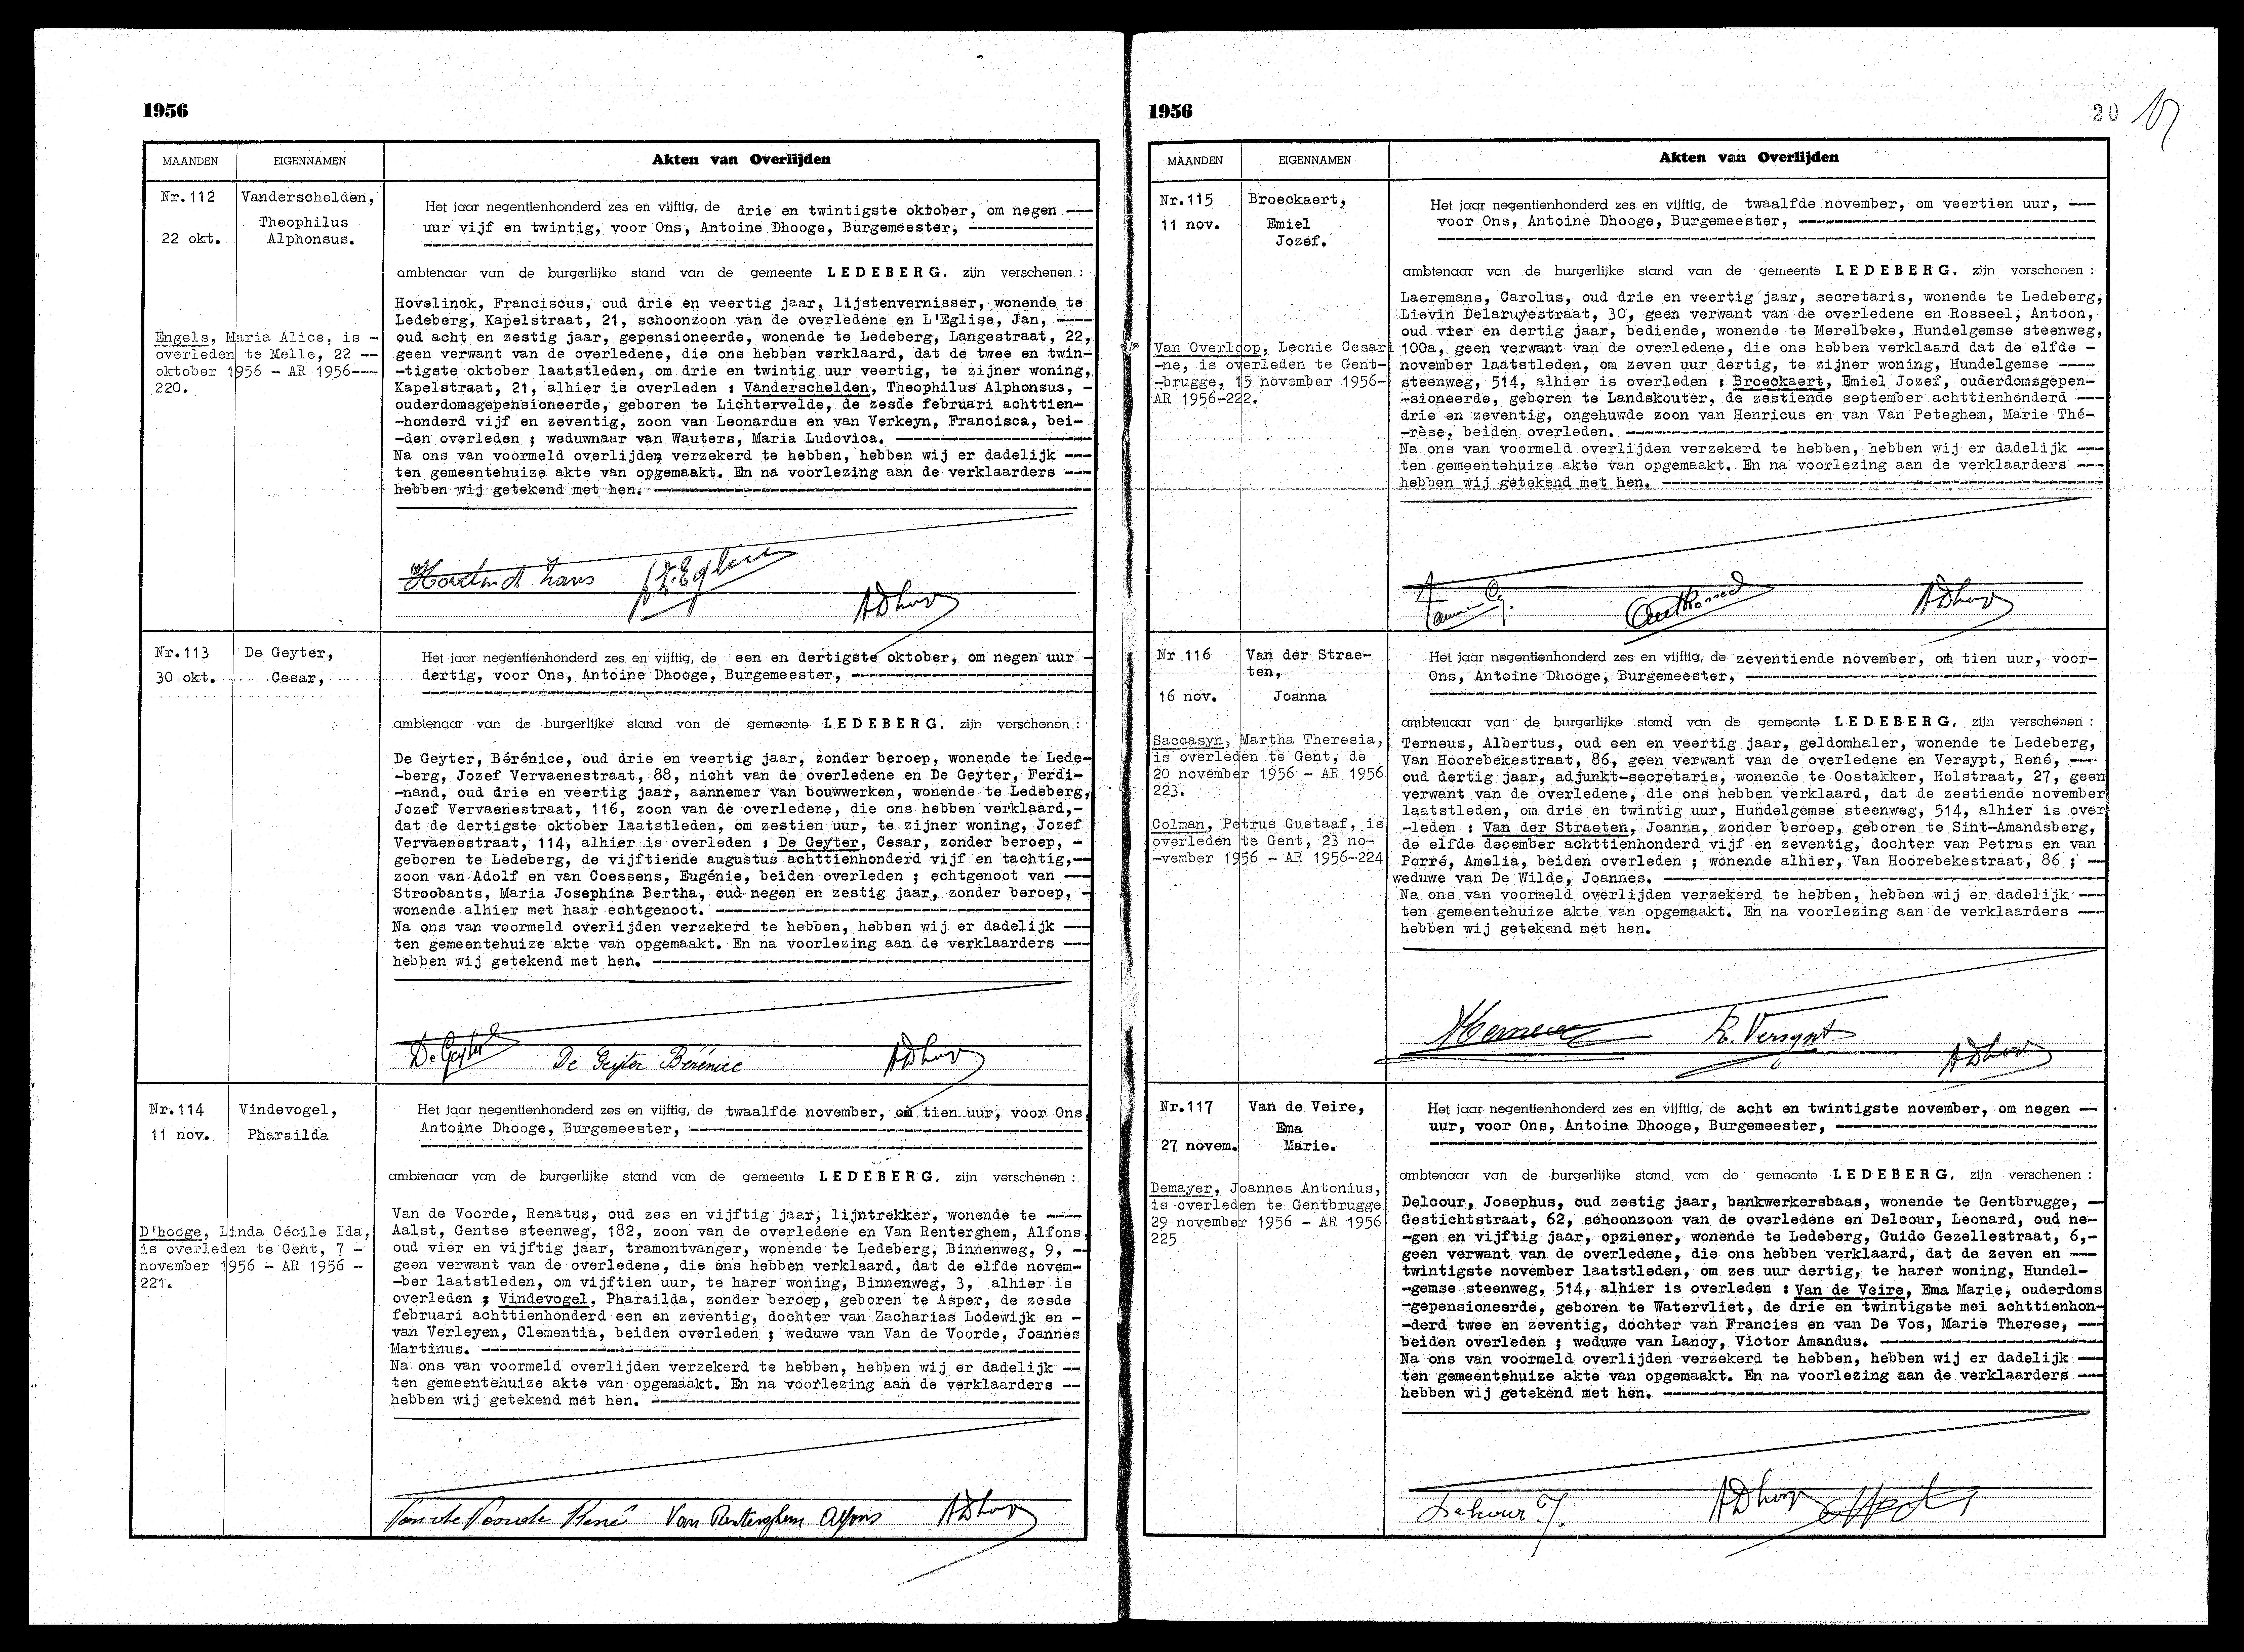 1956
MAANDEN EIGENNAMEN Akten van Overlijden
Nr.112 Vanderschelden,
Theophilus
22 okt. Alphonsus.
Het jaar negentienhonderd zes en vijftig, de drie en twintigste oktober, om negen ---
uur vijf en twintig, voor Ons, Antoine Dhooge, Burgemeester, ---
ambtenaar van de burgerlijke stand van de gemeente LEDEBERG, zijn verschenen :
Hovelinck, Franciscus, oud drie en veertig jaar, lijstenvernisser, wonende te
Ledeberg, Kapelstraat, 21, schoonzoon van de overledene en L'Eglise, Jan, ----
oud acht en zestig jaar, gepensioneerde, wonende te Ledeberg, Langestraat, 22,
geen verwant van de overledene, die ons hebben verklaard, dat de twee en twin-
-tigste oktober laatstleden, om drie en twintig uur veertig, te zijner woning,
Kapelstraat, 21, alhier is overleden : Vanderschelden, Theophilus Alphonsus, -
ouderdomsgepensioneerde, geboren te Lichtervelde, de zesde februari achttien-
-honderd vijf en zeventig, zoon van Leonardus en van Verkeyn, Francisca, bei-
-den overleden ; weduwnaar van Wauters, Maria Ludovica. ---
Na ons van voormeld overlijden verzekerd te hebben, hebben wij er dadelijk ---
ten gemeentehuize akte van opgemaakt. En na voorlezing aan de verklaarders ---
hebben wij getekend met hen. ---
Engels, Maria Alice, is -
overleden te Melle, 22 --
oktober 1956 - AR 1956---
220.
ADhooge
Nr.113 De Geyter,
30 okt. Cesar,
Het jaar negentienhonderd zes en vijftig, de een en dertigste oktober, om negen uur -
dertig, voor Ons, Antoine Dhooge, Burgemeester, ---
ambtenaar van de burgerlijke stand van de gemeente LEDEBERG, zijn verschenen :
De Geyter, Bérénice, oud drie en veertig jaar, zonder beroep, wonende te Lede-
-berg, Jozef Vervaenestraat, 88, nicht van de overledene en De Geyter, Ferdi-
-nand, oud drie en veertig jaar, aannemer van bouwwerken, wonende te Ledeberg,
Jozef Vervaenestraat, 116, zoon van de overledene, die ons hebben verklaard,-
dat de dertigste oktober laatstleden, om zestien uur, te zijner woning, Jozef
Vervaenestraat, 114, alhier is overleden : De Geyter, Cesar, zonder beroep, -
geboren te Ledeberg, de vijftiende augustus achttienhonderd vijf en tachtig,--
zoon van Adolf en van Coessens, Eugénie, beiden overleden ; echtgenoot van ---
Stroobants, Maria Josephina Bertha, oud negen en zestig jaar, zonder beroep, -
wonende alhier met haar echtgenoot. ---
Na ons van voormeld overlijden verzekerd te hebben, hebben wij er dadelijk ---
ten gemeentehuize akte van opgemaakt. En na voorlezing aan de verklaarders ---
hebben wij getekend met hen. ---
De Geyter De Geyter Bérénice ADhooge
Nr.114 Vindevogel,
11 nov. Pharailda
Het jaar negentienhonderd zes en vijftig, de twaalfde november, om tien uur, voor Ons,
Antoine Dhooge, Burgemeester, ---
ambtenaar van de burgerlijke stand van de gemeente LEDEBERG, zijn verschenen :
Van de Voorde, Renatus, oud zes en vijftig jaar, lijntrekker, wonende te ----
Aalst, Gentse steenweg, 182, zoon van de overledene en Van Renterghem, Alfons,
oud vier en vijftig jaar, tramontvanger, wonende te Ledeberg, Binnenweg, 9, --
geen verwant van de overledene, die ons hebben verklaard, dat de elfde novem-
-ber laatstleden, om vijftien uur, te harer woning, Binnenweg, 3, alhier is
overleden ; Vindevogel, Pharailda, zonder beroep, geboren te Asper, de zesde
februari achttienhonderd een en zeventig, dochter van Zacharias Lodewijk en -
van Verleyen, Clementia, beiden overleden ; weduwe van Van de Voorde, Joannes
Martinus. ---
Na ons van voormeld overlijden verzekerd te hebben, hebben wij er dadelijk --
ten gemeentehuize akte van opgemaakt. En na voorlezing aan de verklaarders --
hebben wij getekend met hen. ---
D'hooge, Linda Cécile Ida,
is overleden te Gent, 7 -
november 1956 - AR 1956 -
221.
Van de Voorde René Van Renterghem Alfons ADhooge
1956 20
MAANDEN EIGENNAMEN Akten van Overlijden
Nr.115 Broeckaert,
11 nov. Emiel
Jozef.
Het jaar negentienhonderd zes en vijftig, de twaalfde november, om veertien uur, ---
voor Ons, Antoine Dhooge, Burgemeester, ---
ambtenaar van de burgerlijke stand van de gemeente LEDEBERG, zijn verschenen :
Laeremans, Carolus, oud drie en veertig jaar, secretaris, wonende te Ledeberg,
Lievin Delaruyestraat, 30, geen verwant van de overledene en Rosseel, Antoon,
oud vier en dertig jaar, bediende, wonende te Merelbeke, Hundelgemse steenweg,
100a, geen verwant van de overledene, die ons hebben verklaard dat de elfde -
november laatstleden, om zeven uur dertig, te zijner woning, Hundelgemse ----
steenweg, 514, alhier is overleden : Broeckaert, Emiel Jozef, ouderdomsgepen-
-sioneerde, geboren te Landskouter, de zestiende september achttienhonderd ---
drie en zeventig, ongehuwde zoon van Henricus en van Van Peteghem, Marie Thé-
-rèse, beiden overleden. ---
Na ons van voormeld overlijden verzekerd te hebben, hebben wij er dadelijk ---
ten gemeentehuize akte van opgemaakt. En na voorlezing aan de verklaarders ---
hebben wij getekend met hen. ---
Van Overloop, Leonie Cesari
-ne, is overleden te Gent-
-brugge, 15 november 1956-
AR 1956-222.
ADhooge
Nr 116 Van der Strae-
ten,
16 nov. Joanna
Het jaar negentienhonderd zes en vijftig, de zeventiende november, om tien uur, voor-
Ons, Antoine Dhooge, Burgemeester, ---
ambtenaar van de burgerlijke stand van de gemeente LEDEBERG, zijn verschenen :
Terneus, Albertus, oud een en veertig jaar, geldomhaler, wonende te Ledeberg,
Van Hoorebekestraat, 86, geen verwant van de overledene en Versypt, René, ---
oud dertig jaar, adjunkt-secretaris, wonende te Oostakker, Holstraat, 27, geen
verwant van de overledene, die ons hebben verklaard, dat de zestiende november
laatstleden, om drie en twintig uur, Hundelgemse steenweg, 514, alhier is over
-leden : Van der Straeten, Joanna, zonder beroep, geboren te Sint-Amandsberg,
de elfde december achttienhonderd vijf en zeventig, dochter van Petrus en van
Porré, Amelia, beiden overleden ; wonende alhier, Van Hoorebekestraat, 86 ; --
weduwe van De Wilde, Joannes. ---
Na ons van voormeld overlijden verzekerd te hebben, hebben wij er dadelijk ---
ten gemeentehuize akte van opgemaakt. En na voorlezing aan de verklaarders ---
hebben wij getekend met hen.
Saccasyn, Martha Theresia,
is overleden te Gent, de
20 november 1956 - AR 1956
223.
Colman, Petrus Gustaaf, is
overleden te Gent, 23 no-
-vember 1956 - AR 1956-224
R. Versypt ADhooge
Nr.117 Van de Veire,
Ema
27 novem. Marie.
Het jaar negentienhonderd zes en vijftig, de acht en twintigste november, om negen --
uur, voor Ons, Antoine Dhooge, Burgemeester, ---
ambtenaar van de burgerlijke stand van de gemeente LEDEBERG, zijn verschenen :
Delcour, Josephus, oud zestig jaar, bankwerkersbaas, wonende te Gentbrugge, --
Gestichtstraat, 62, schoonzoon van de overledene en Delcour, Leonard, oud ne-
-gen en vijftig jaar, opziener, wonende te Ledeberg, Guido Gezellestraat, 6,-
geen verwant van de overledene, die ons hebben verklaard, dat de zeven en ---
twintigste november laatstleden, om zes uur dertig, te harer woning, Hundel-
-gemse steenweg, 514, alhier is overleden : Van de Veire, Ema Marie, ouderdoms
-gepensioneerde, geboren te Watervliet, de drie en twintigste mei achttienhon-
-derd twee en zeventig, dochter van Francies en van De Vos, Marie Therese, ---
beiden overleden ; weduwe van Lanoy, Victor Amandus. ---
Na ons van voormeld overlijden verzekerd te hebben, hebben wij er dadelijk ---
ten gemeentehuize akte van opgemaakt. En na voorlezing aan de verklaarders ---
hebben wij getekend met hen. ---
Demayer, Joannes Antonius,
is overleden te Gentbrugge
29 november 1956 - AR 1956
225
Delcour J. ADhooge